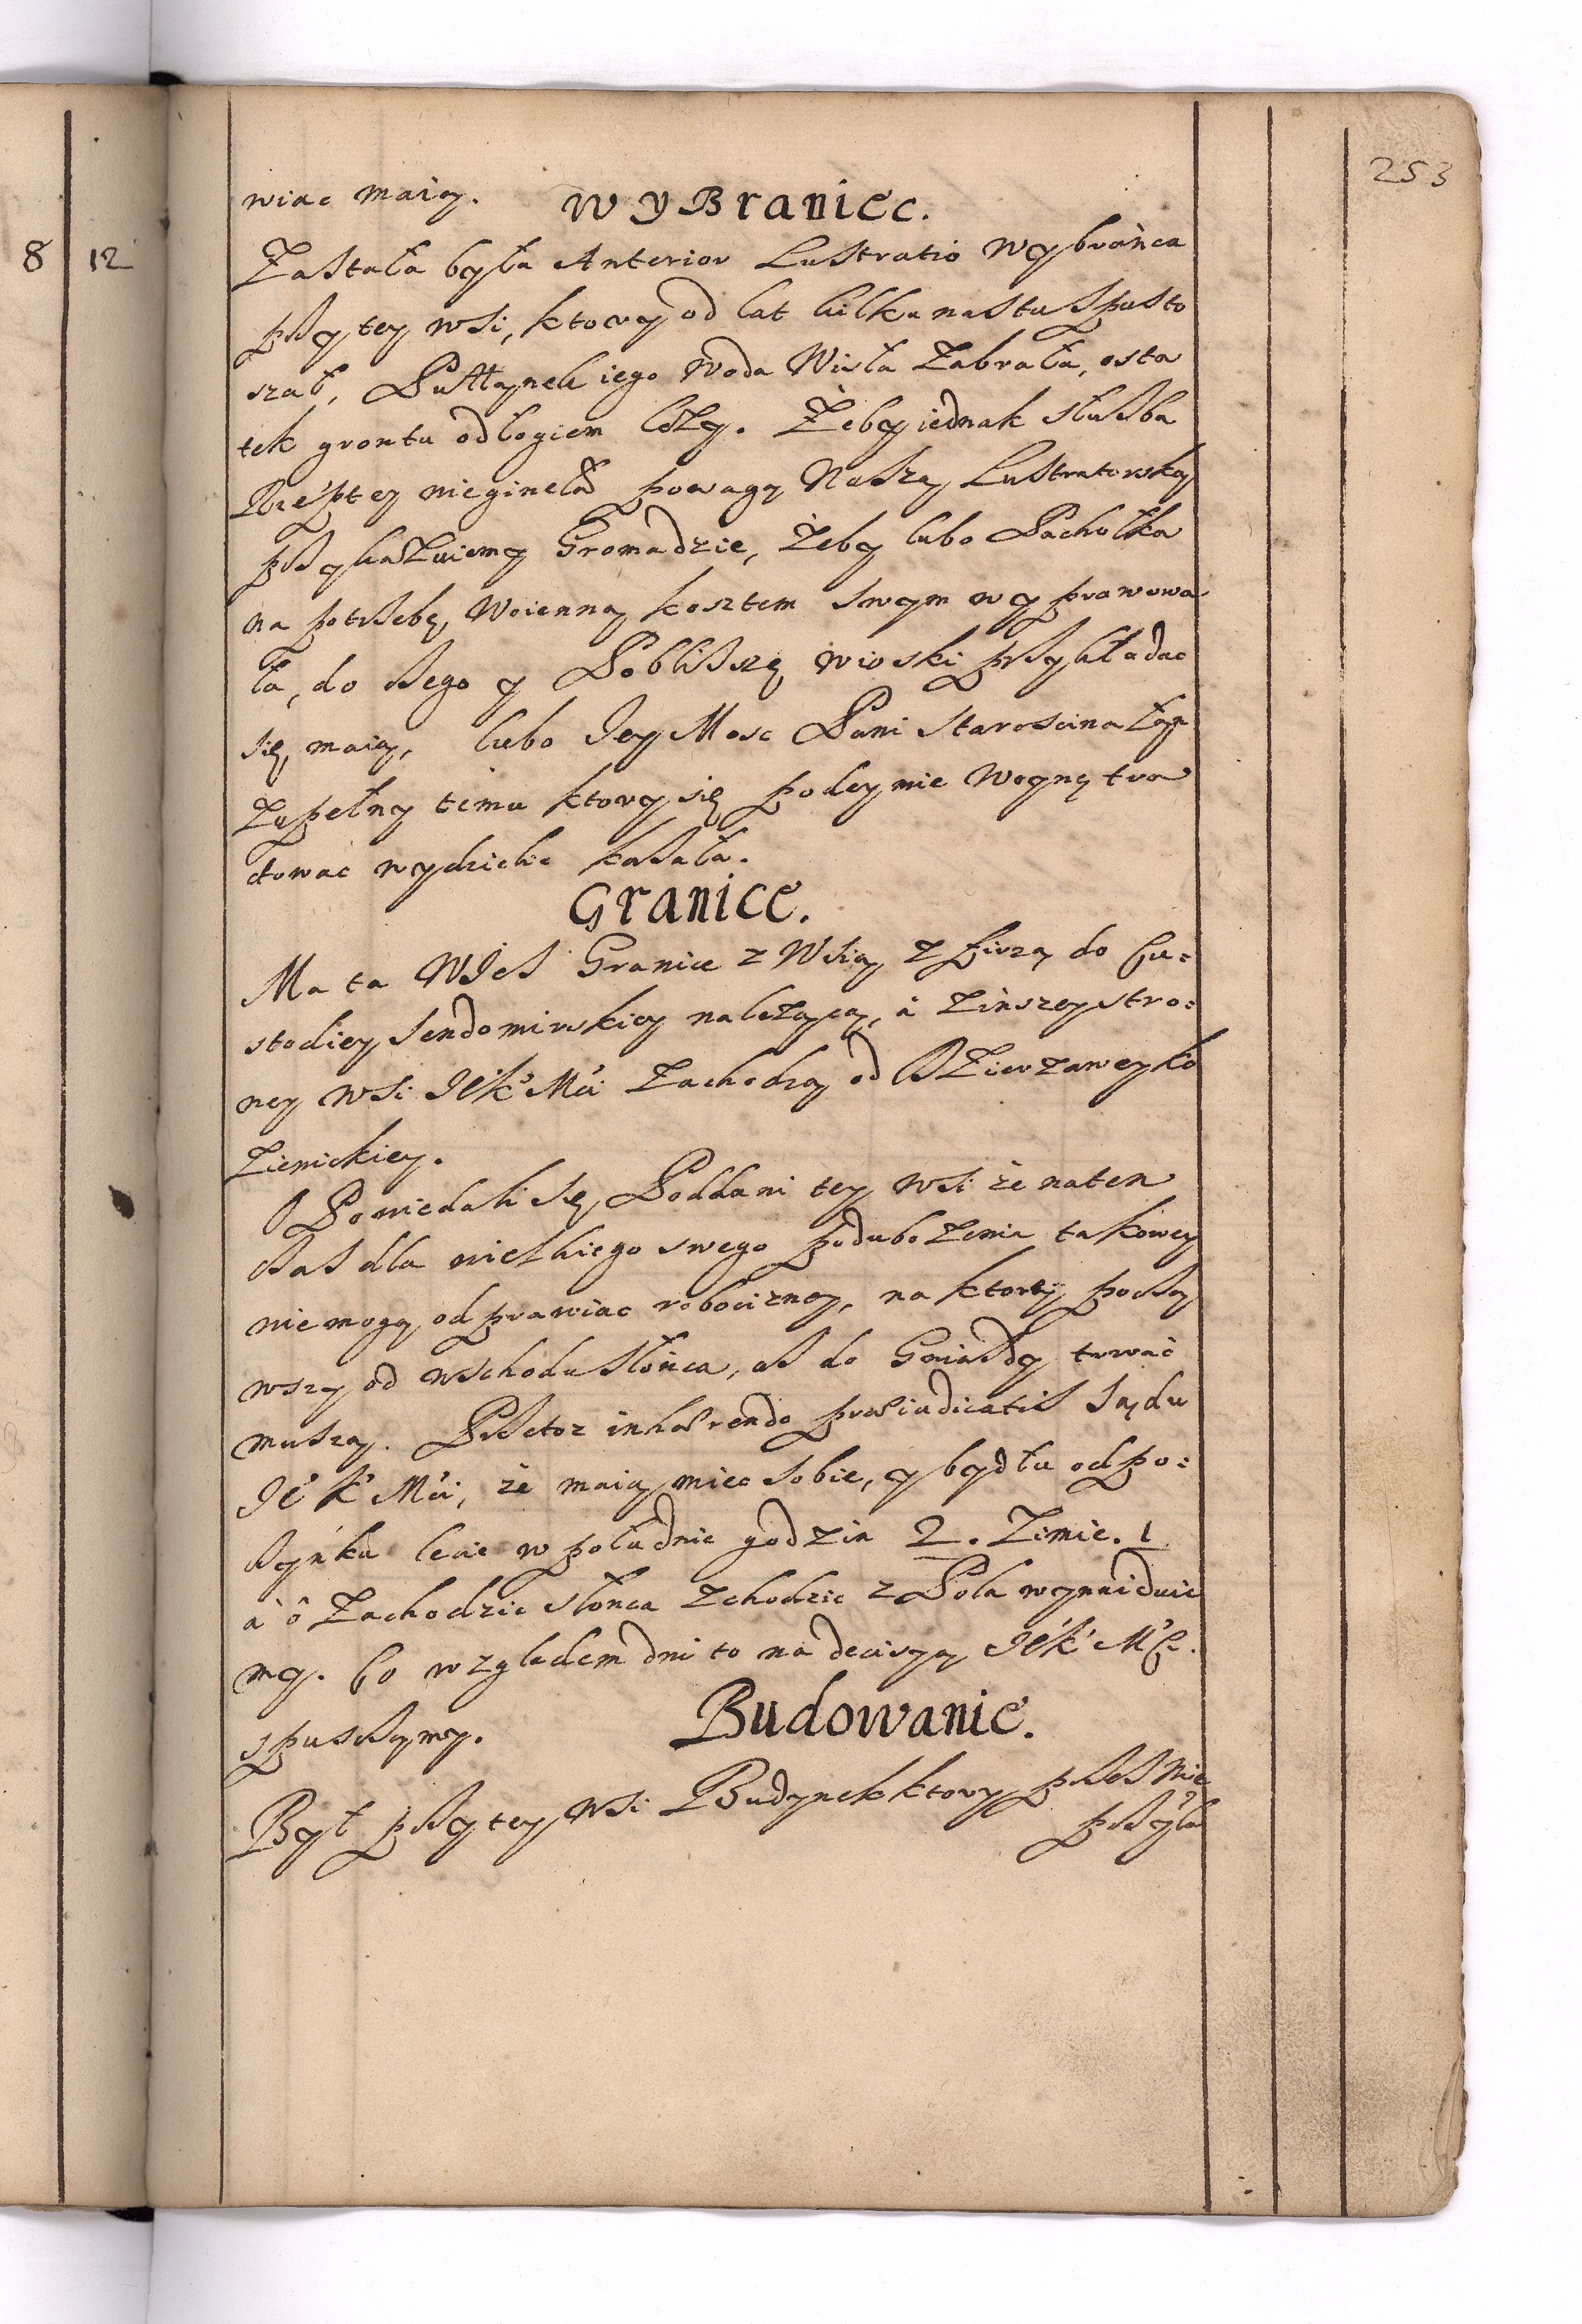 253
8 12
wiac maią. WyBraniec.
Zastała była Anterior Lustratio wybrańca
przy tey wsi, ktory od lat kilkunastu spusto
szał, Pułłanek iego Woda Wisła Zabrała, osta
tek grontu odłogiem leży. Żeby iednak służba
Rzeptey nieginęła powagą Naszą Lustratorską
przykazuiemy Gromadzie, żeby lubo Pachołka
na potrzebę Woienną kosztem swym wyprawowa
ła, do czego y Pobliższe wioski przykładac
się maią, lubo Jey Mosc Pani Starościna Łan
Zupełny temu ktory się podeymie Woynę tra
ctowac wydzielic kazała.
Granice.
Ma ta Wies Granice z Wsią do Cu=
stodiey Sendomirskiey należącą, á z inszey stro=
ny wsi JeKMci Zachodzą od Dzierzawey Ko
zienickiey.
Opowiedali się Poddani tey wsi że naten
czas dla wielkiego swego podubożenia takowey
niemogą odprawiac robocizny, na ktorey począ
wszy od wschodu słońca, asz do Gwiazdy trwać
muszą. Przetoz inhærendo præiudicatis Sądu
JeKMci, że maią miec sobie, y bydłu odpo=
czynku lecie w południe godzin 2. Zimie. 1
á o Zachodzie słonca Zchodzic z Pola wynaiduie
my. Co względem dni to na decisyą JeKMCi.
spusczamy. Budowanie.
Był przy tey wsi Budynek ktory przes Nie
przyia